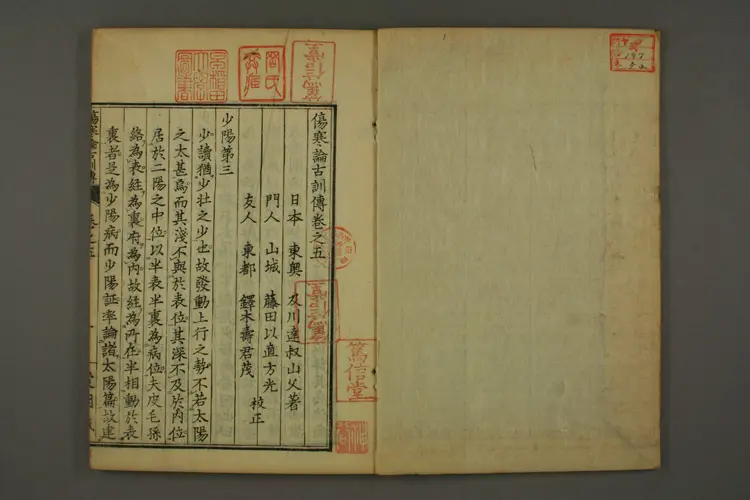 傷寒論古訓傳卷之五
日本 東奥 及川達叔山父著
門人 山城 藤田以直方光
友人 東都 鐸木壽君茂
校正
少陽第三
少讀猶少壮之少也故發動上行之勢不若太陽
之太甚焉而其淺不與於表位其深不及於内位
居於二陽之中位以半表半裏為病位夫皮毛孫
絡為表經為裏府為内故經為所在半相動於表
裏者是為少陽病而少陽証率論諸太陽篇故建
傷寒論古訓傳
卷之五
篤信堂